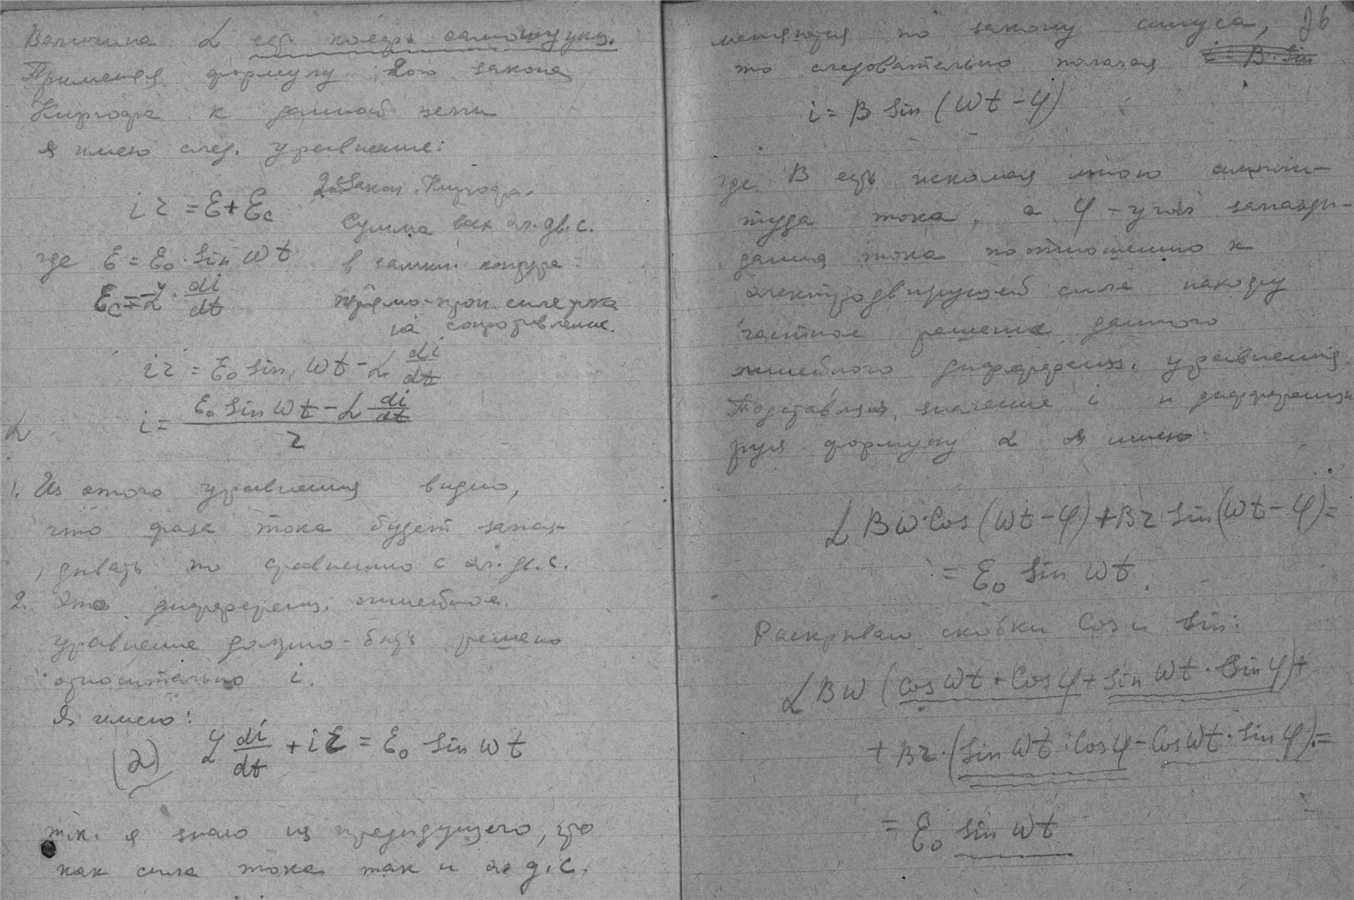 Величина L есть коэф. самоиндукц.
Применяя формулу 2ого закона
Кирхгофа к данной цепи
я имею след. уравнение:
i r = Ɛ + Ɛc
2ой Закон. Кирхгофа.
Сумма всех эл. дв. с.
в замкн. контуре
прямо-проп. силе тока
на сопротивление.
где Ɛ = Ɛ₀ · Sin ωt
Ɛc = -L · di/dt
i r = Ɛ₀ sin ωt - L di/dt
i = (Ɛ₀ Sin ωt - L di/dt) / r
L
1. Из этого уравнения видно,
что фаза тока будет запаз-
дывать по сравнению с эл. дв. с.
2. Это дифференц. линейное
уравнение должно-быть решено
относительно i.
Я имею:
(2) L di/dt + i r = Ɛ₀ Sin ωt
т.к. я знаю из предыдущего, что
как сила тока так и эл д. с.
26
меняются по закону синуса,
то следовательно полагая i = B · Sin
i = B Sin (ωt - φ)
где B есть искомая мною ампли-
туда тока, а φ - угол запазды-
вания тока по отношению к
электродвижущей силе нахожу
частное решение данного
линейного дифференц. уравнения
Подставляя значение i и дифференци-
руя формулу 2 я имею:
L B ω · Cos (ωt - φ) + B r Sin (ωt - φ) =
= Ɛ₀ Sin ωt.
Раскрываю скобки Cos и Sin:
L B ω (Cos ωt · Cos φ + Sin ωt · Sin φ) +
+ B r · (Sin ωt · Cos φ - Cos ωt · Sin φ) =
= Ɛ₀ Sin ωt